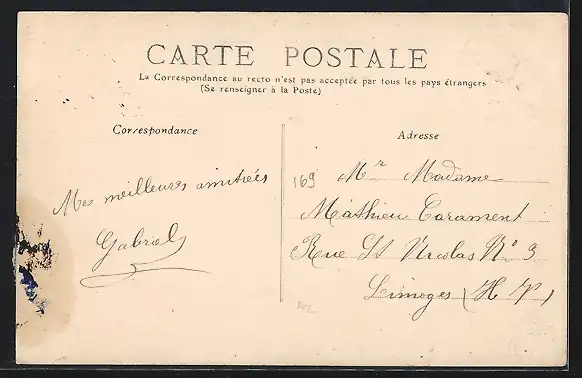 CARTE POSTALE
La Correspondance au recto n'est pas acceptée par tous les pays étrangers
(Se renseigner à la Poste)
Correspondance
Mes meilleures amitiées
Gabriel
Adresse
169
Mr Madame
Mathieu Carament
Rue St Nicolas No 3
Limoges (H V)
102